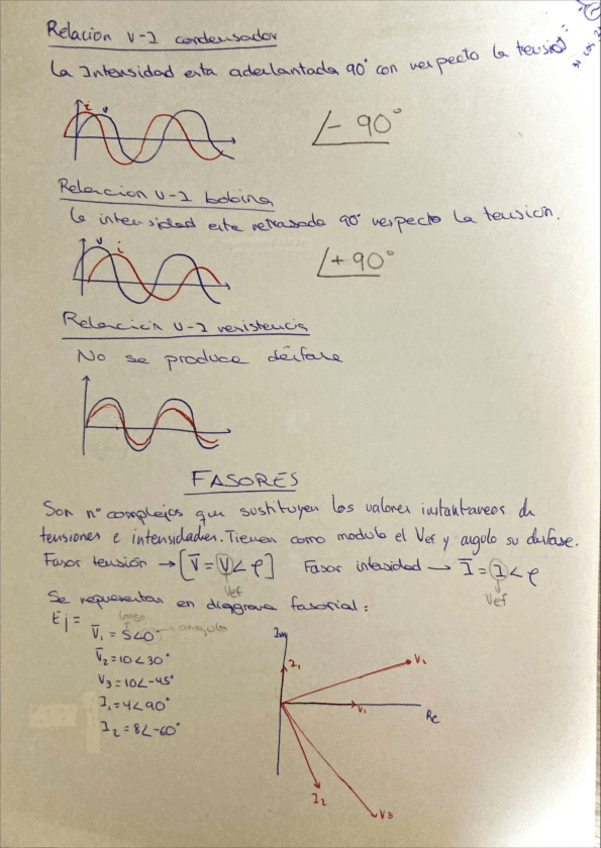 Relacion V-I condensador
la Intensidad esta aderlantada 90° con respecto la tensión
i v
∠- 90°
Relacion V-I bobina
la intensidad esta retrasada 90° respecto la tension.
v i
∠+ 90°
Relacion V-I resistencia
No se produce desfase
FASORES
Son nº complejos que sustituyen los valores instantaneos de
tensiones e intensidades. Tienen como modulo el Vef y angulo su desfase.
Fasor tensión → [V̅ = V∠φ] Fasor intesidad → I̅ = I∠φ
Vef Vef
Se representan en diagrama fasorial:
Ej=
angulo
V̅₁ = 5∠0°
V̅₂ = 10∠30°
V₃ = 10∠-45°
I₁ = 4∠90°
I₂ = 8∠-60°
Im
I₁
V₂
V₁
Re
I₂
V₃